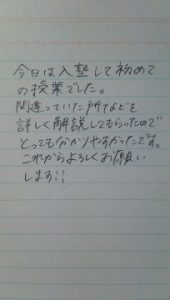 今日は入塾して初めて
の授業でした。
間違っていた所などを
詳しく解説してもらったので
とっても分かりやすかったです。
これからよろしくお願い
します!!